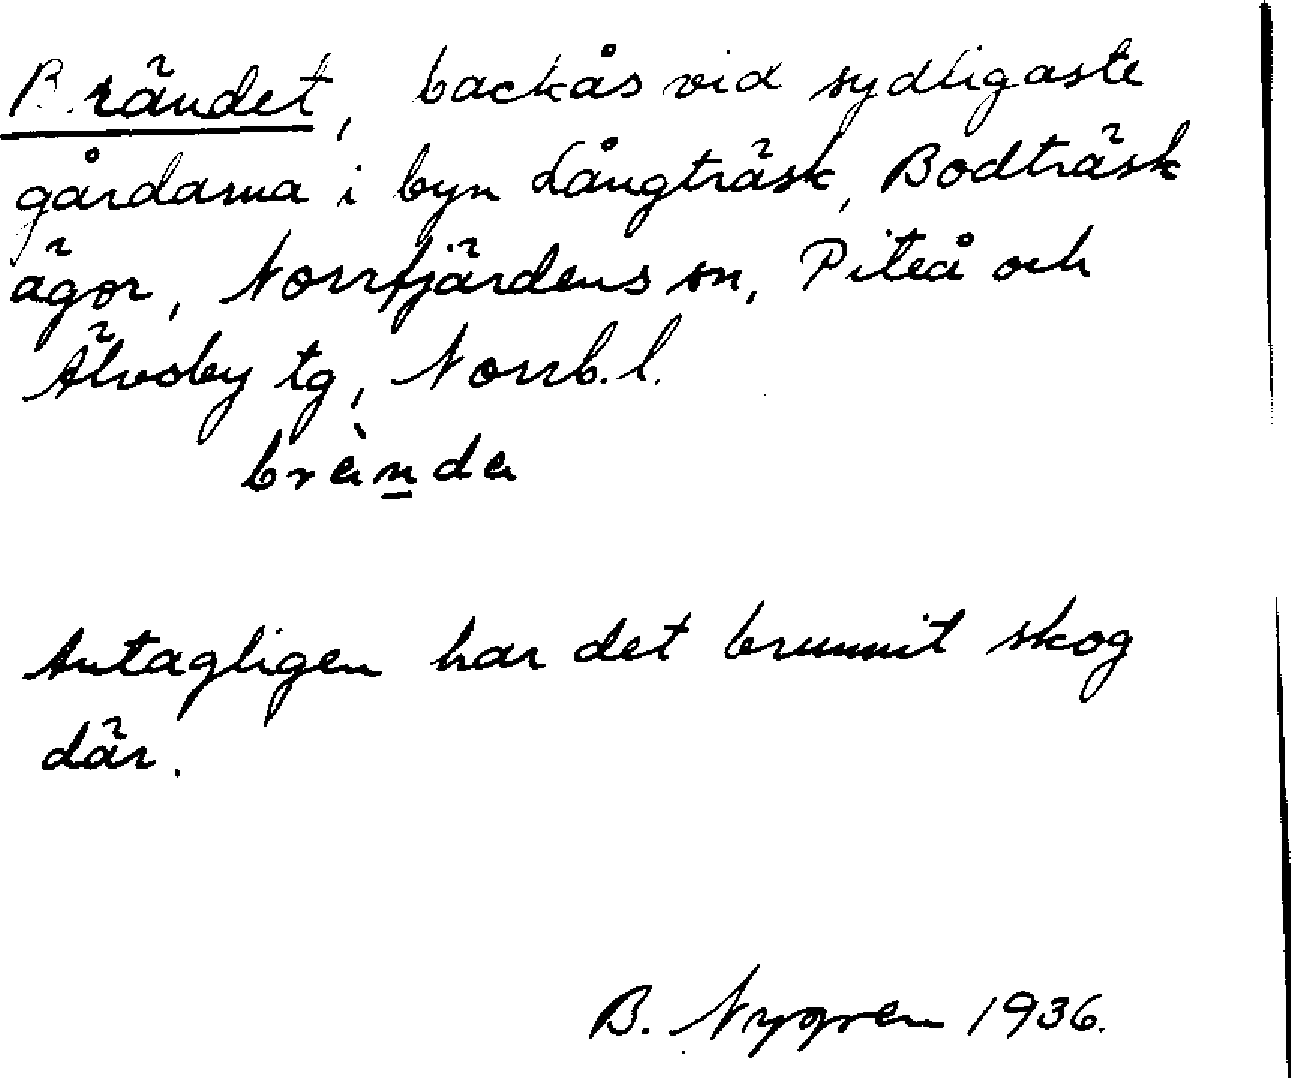 Brändet, backås vid sydligaste
gårdarna i byn Långträsk, Bodträsk
ägor, Norrfjärdens sn, Piteå och
Älvsby tg, Norrb. l.
brànda
Antagligen har det brunnit skog
där.
B. Nygren 1936.